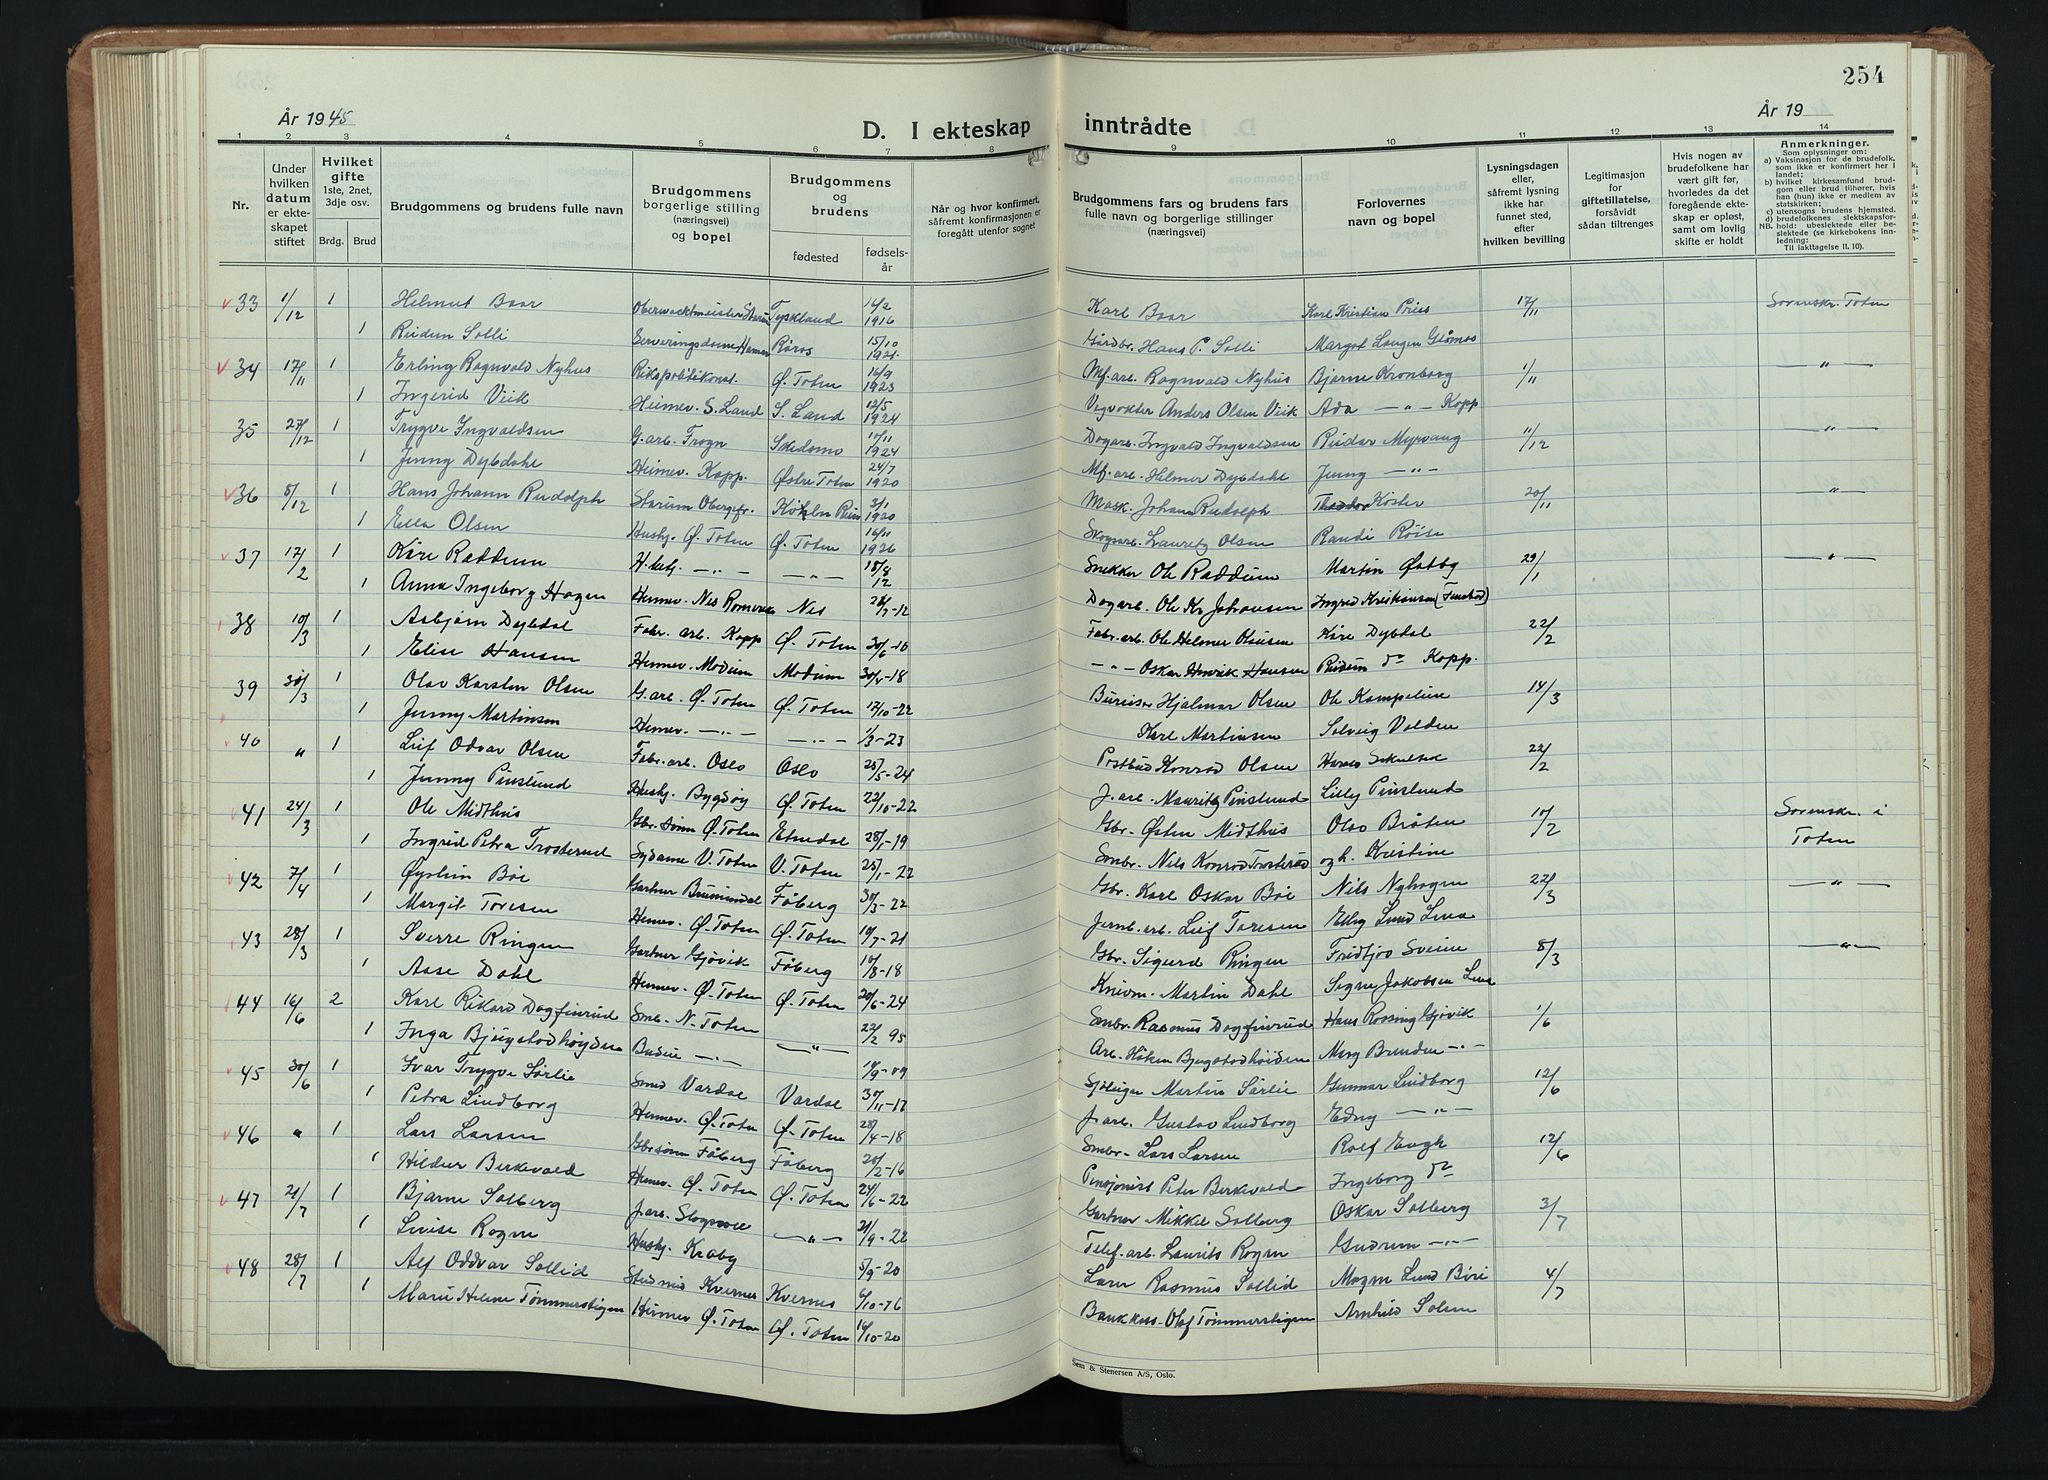 254
År 1945
År 19
D. I ekteskap inntrådte
1 2 3 4 5 6 7 8 9 10 11 12 13 14
Nr.
Under hvilken datum er ekteskapet stiftet
Hvilket gifte 1ste, 2net, 3dje osv.
Brdg. Brud
Brudgommens og brudens fulle navn
Brudgommens borgerlige stilling (næringsvei) og bopel
Brudgommens og brudens
fødested
fødselsår
Når og hvor konfirmert, såfremt konfirmasjonen er foregått utenfor sognet
Brudgommens fars og brudens fars fulle navn og borgerlige stillinger (næringsvei)
Forlovernes navn og bopel
Lysningsdagen eller, såfremt lysning ikke har funnet sted, efter hvilken bevilling
Legitimasjon for giftetillatelse, forsåvidt sådan tiltrenges
Hvis nogen av brudefolkene har vært gift før, hvorledes da det foregående ekteskap er opløst, samt om lovlig skifte er holdt
Anmerkninger.
Som oplysninger om:
a) Vaksinasjon for de brudefolk, som ikke er konfirmert her i landet;
b) hvilket kirkesamfund brudgom eller brud tilhører, hvis han (hun) ikke er medlem av statskirken;
c) utensogns brudens hjemsted.
d) brudefolkenes slektskapsforhold: ubeslektede eller beslektede (se kirkebokens innledning:
NB.
Til iakttagelse II. 10).
33 1/12 1 Helmut Baar Oberwachtmeister Starum Tyskland 16/2 1916 Karl Baar Karl Kristian Priess 17/11 Sorenskr. Toten
1 Reidun Solli Serveringsdame Hamar Røros 15/10 1921 Gårdbr. Hans P. Solli Margot Langen Glåmos
34 17/11 1 Erling Ragnvald Nyhus Rikspolitikonst. Ø. Toten 16/9 1923 Mf. arb. Ragnvald Nyhus Bjarne Kronborg 1/11 — " —
1 Ingerid Viik Heimev. S. Land S. Land 12/5 1924 Vegvokter Anders Olsen Viik Ada — " — Kopp
35 27/12 1 Trygve Ingvaldsen G. arb. Trogn Skedsmo 11/11 1924 Dagarb. Ingvald Ingvaldsen Reidar Myrvang 11/12 "
1 Jenny Dybdahl Heimev. Kapp. Østre Toten 24/7 1920 Mf. arb. Helmer Dybdahl Jenny — " —
36 5/12 1 Hans Johann Rudolph Starum Obergfr. 3/1 1920 Mask. Johann Rudolph Theodor Köster 20/11 "
1 Ella Olsen Hushj. Ø. Toten Ø. Toten 16/11 1926 Skogsarb. Lauretz Olsen Randi Røise
37 17/2 1 Kåre Raddum — " — — " — 18/8 12 Snekker Ole Raddum Martin Østby 29/1 "
1 Anna Ingeborg Hagen Hemev. Nes Romerike Nes 28/7-12 Dagarb. Ole Kr Johansen Ingrid Kristiansen
38 10/3 1 Asbjørn Dybdal Fabr. arb. Kapp Ø. Toten 30/6-16 Fabr. arb. Ole Helmer Kåre Dybdal 22/2
1 Elise Hansen Hemev. Modum Modum 30/4-18 — " — Oskar Henrik Hansen Reidun do Kapp.
39 30/3 1 Olav Karsten Olsen G. arb. Ø. Toten Ø. Toten 17/10-22 Bureiser Hjalmar Olsen Ole Kampelien 14/3
1 Jenny Martinsen Hemev. — " — — " — 1/3-23 Karl Martinsen Solveig Volden
40 " 1 Leif Odvar Olsen Fabr. arb. Oslo Oslo 25/5-24 Postbud Konrad Olsen 22/2
1 Jenny Pinslund Hushj. Bygdøy Ø. Toten 22/10-22 J. arb. Mauritz Pinslund Lilly Pinslund
41 24/3 1 Ole Midthus Gbr. sønn Ø. Toten Etnedal 28/1-19 Gbr. Østen Midthus Olav Bråten 10/2 Sorenskr. i Toten
1 Ingrid Petra Trosterud Sydame V. Toten V. Toten 25/1-22 Smbr. Nils Konrad Trosterud og h. Kristine
42 7/4 1 Øystein Bøe Gartner Brumundal Fåberg 30/3-22 Gbr. Karl Oskar Bøe Nils Nyhagen 22/3 — " —
1 Margit Toresen Hemev. Ø. Toten Ø. Toten 19/7-21 Jernb. arb. Leif Toresen Elly Lund Lena
43 28/3 1 Sverre Ringen Gartner Gjøvik Fåberg 10/8-18 Gbr. Sigurd Ringen Fridtjov Sveine 8/3 — " —
1 Aase Dahl Hemev. Ø. Toten Ø. Toten 20/6-24 Martin Dahl Signe Jakobsen Lena
44 16/6 2 Karl Rikard Dagfinrud Smb. N. Toten — " — 22/2 95 Smbr. Rasmus Dagfinrud Hans Rossung Gjøvik 1/6
1 Inga Bjugstadhøyden Budeie — " — 19/9-09 Arb. Håken Bjugstadhøiden Marg Brenden — " —
45 30/6 1 Ivar Trygve Sørlie Smed Vardal Vardal 30/11-17 Martin Sørlie Gunnar Lindborg 12/6
1 Petra Lindborg Hemev. Ø. Toten Ø. Toten 28/4-18 J. arb. Gustav Lindborg Edny — " —
46 " 1 Lars Larsen Gbrsønn Fåberg Fåberg 20/2-16 Smbr. Lars Larsen Rolf Engh 12/6
1 Hildur Berkevold Hemev. Ø. Toten Ø. Toten 24/6-22 Pensjonist Peter Berkevold Ingeborg do
47 21/7 1 Bjarne Solberg J. arb. — " — 21/9-22 Gartner Mikkel Solberg Oskar Solberg 3/7
1 Lovise Rogne Hushj. Kraby 5/9-20 Telef. arb. Laurits Rogne Gudrun — " —
48 28/7 1 Alf Oddvar Sollid Kvernes Kvernes 6/10-16 Lærer Rasmus Sollid Magne Lund Biri 4/7
1 Marie Helene Tømmerstigen Hemev Ø. Toten Ø. Toten 16/10-20 Bankkass. Olaf Tømmerstigen Arnhild Solem
Sem & Stenersen A/S, Oslo.